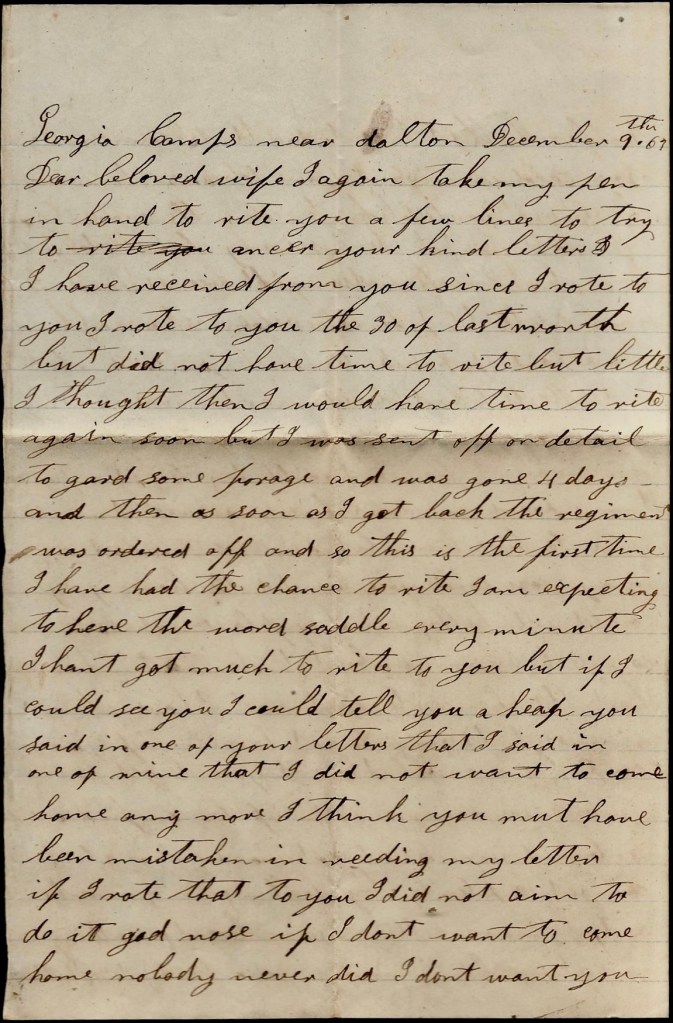 Georgia Camps near dalton December 9th. 63
Dear beloved wife I again take my pen
in hand to rite you a few lines to try
to rite you ancer your kind letters
I have received from you since I rote to
you I rote to you the 30 of last month
but did not have time to rite but little
I thought then I would have time to rite
again soon but I was sent off on detail
to gard some forage and was gone 4 days
and then as soon as I got back the regiment
was ordered off and so this is the first time
I have had the chance to rite I am expecting
to here the word saddle every minute
I hant got much to rite to you but if I
could see you I could tell you a heap you
said in one of your letters that I said in
one of mine that I did not want to come
home any more I think you mut have
been mistaken in reeding my letter
if I rote that to you I did not aim to
do it god nose if I dont want to come
home nobody never did I dont want you